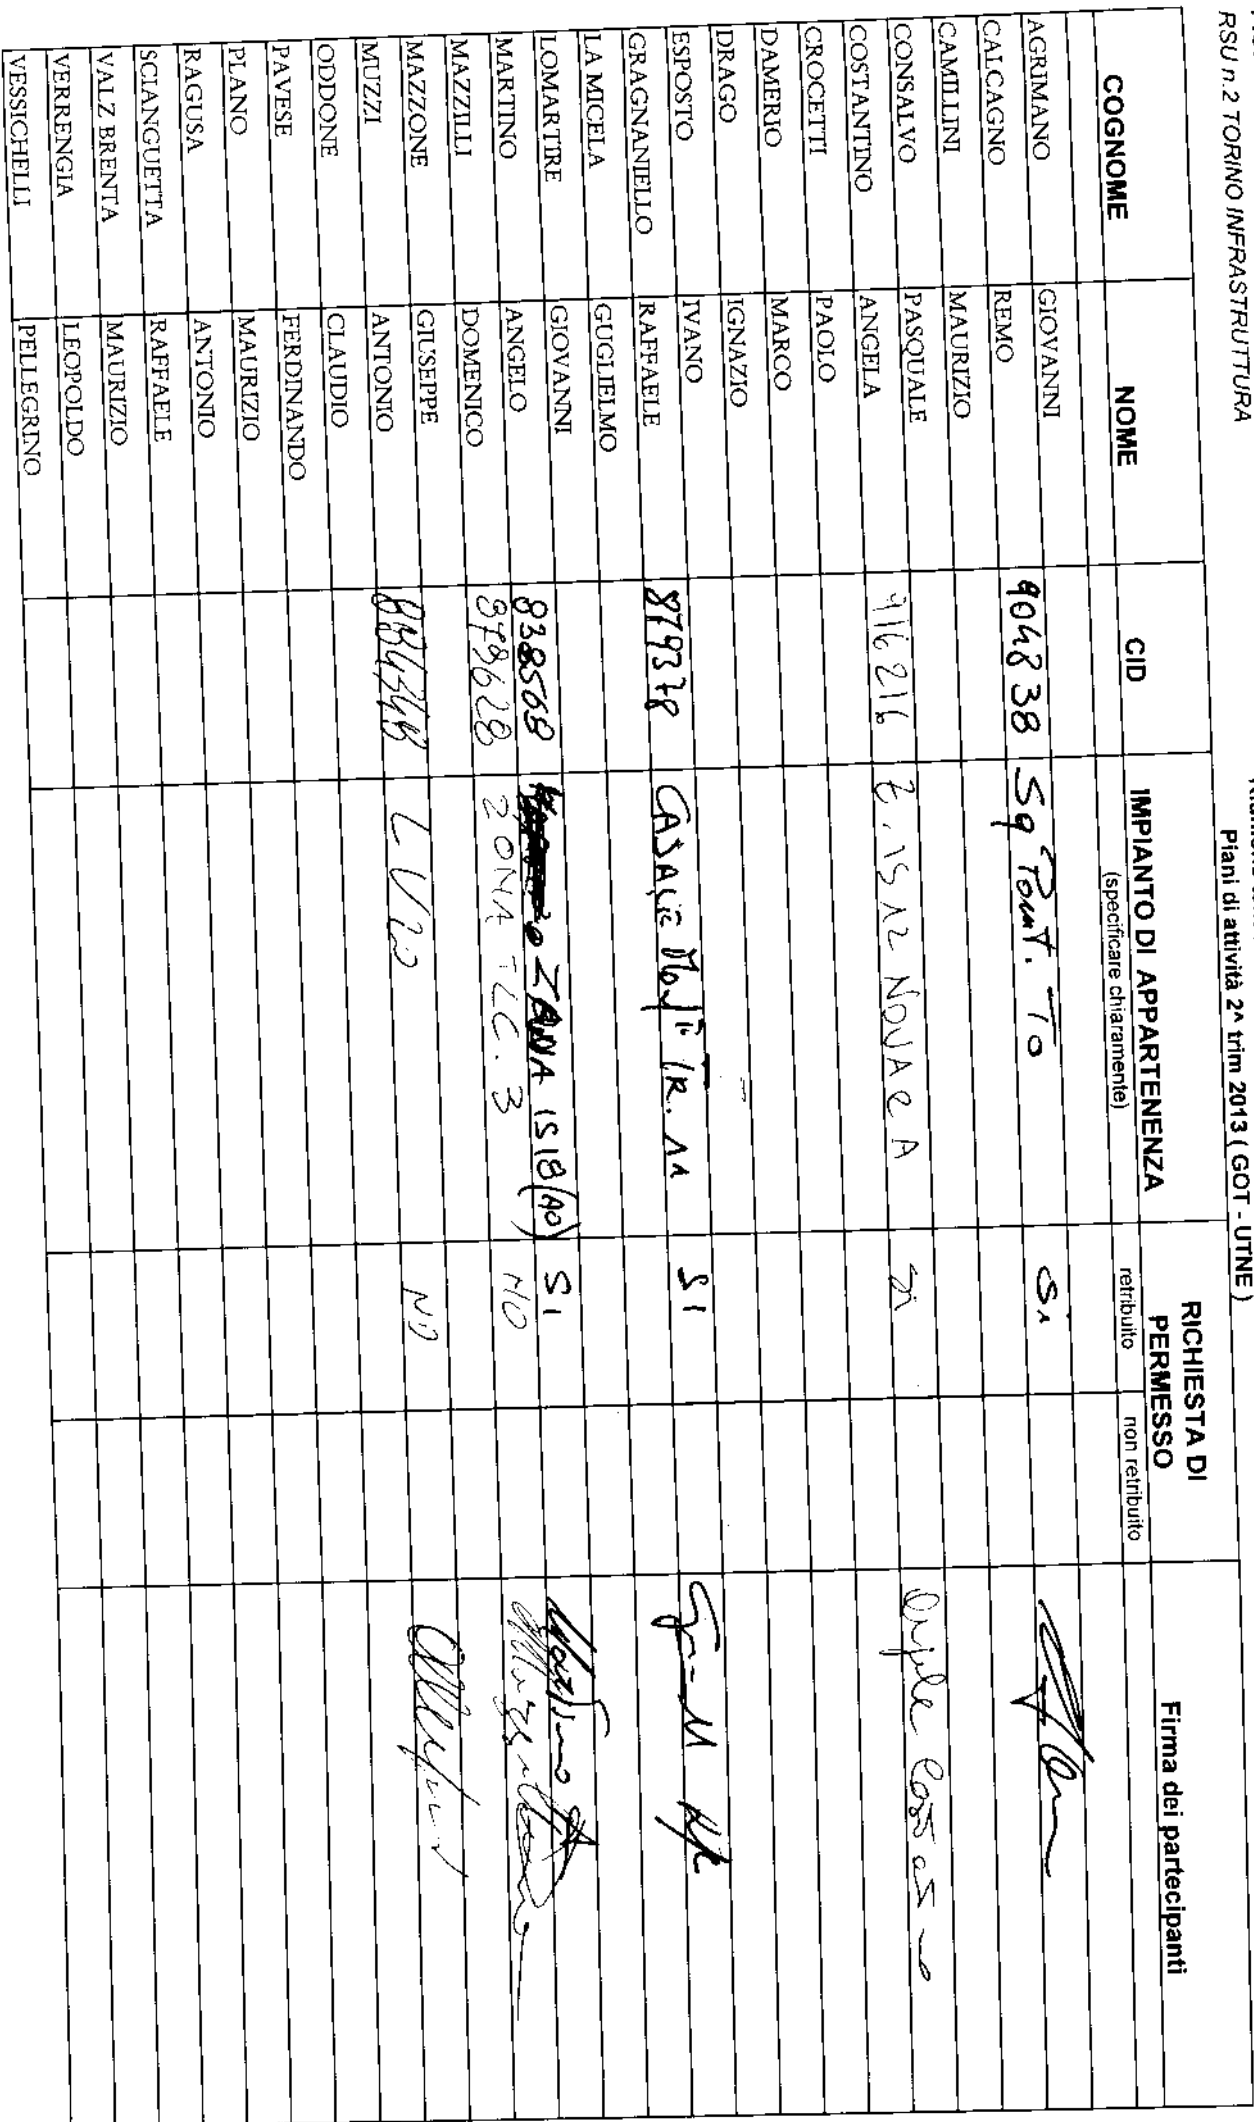 RSU n.2 TORINO INFRASTRUTTURA
Piani di attività 2^ trim 2013 ( GOT - UTNE )
COGNOME NOME CID IMPIANTO DI APPARTENENZA (specificare chiaramente) RICHIESTA DI PERMESSO retribuito non retribuito Firma dei partecipanti
AGRIMANO GIOVANNI
CALCAGNO REMO 904838 Sq Pont. To Si
CAMILLINI MAURIZIO
CONSALVO PASQUALE
COSTANTINO ANGELA 916216 Z. IS 12 NOVARA Si
CROCETTI PAOLO
DAMERIO MARCO
DRAGO IGNAZIO
ESPOSTO IVANO
GRAGNANIELLO RAFFAELE 879378 CASALE TR. 11 SI
LA MICELA GUGLIELMO
LOMARTIRE GIOVANNI
MARTINO ANGELO 838568 ZONA IS 18 (AO) SI Martino
MAZZILLI DOMENICO 879628 ZONA TLC. 3 NO
MAZZONE GIUSEPPE
MUZZI ANTONIO NO
ODDONE CLAUDIO
PAVESE FERDINANDO
PLANO MAURIZIO
RAGUSA ANTONIO
SCIANGUETTA RAFFAELE
VALZ BRENTA MAURIZIO
VERRENGIA LEOPOLDO
VESSICHELLI PELLEGRINO